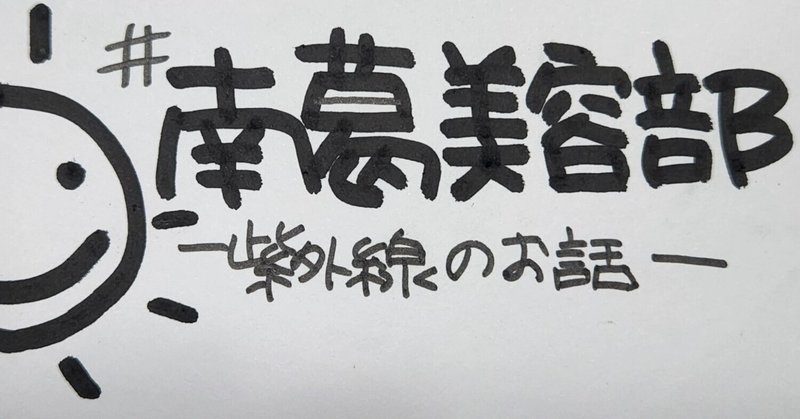 #南葛美容部
ー紫外線のお話ー